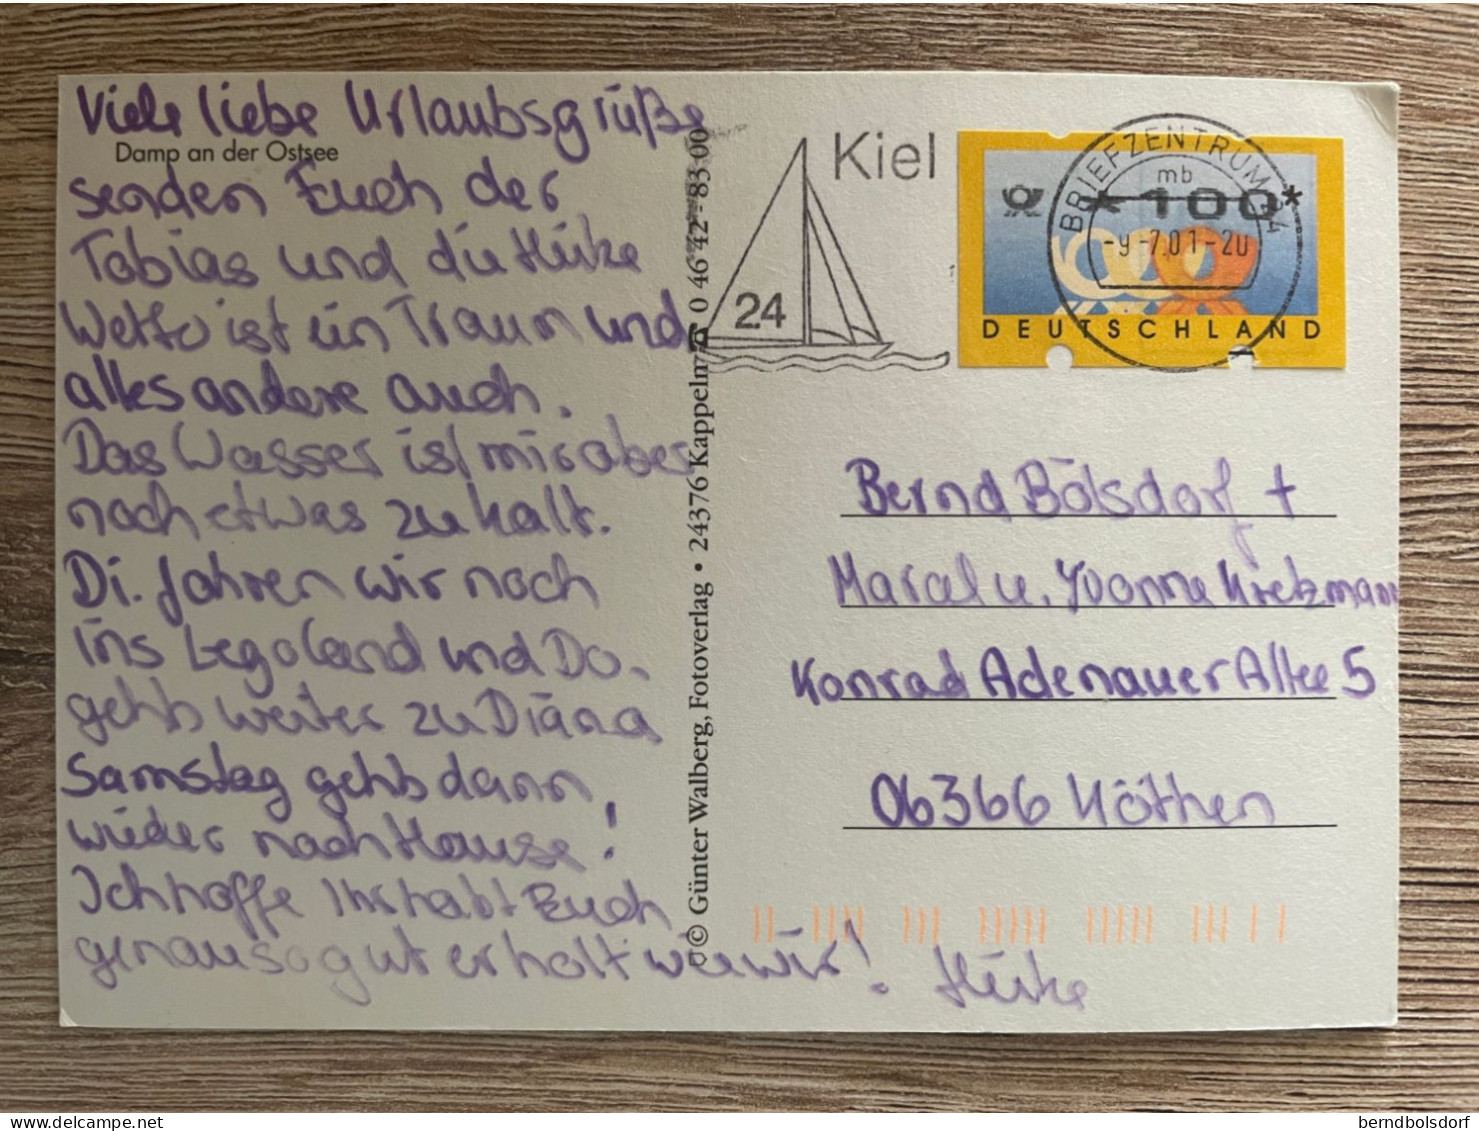 Viele liebe Urlaubsgrüße
Damp an der Ostsee
senden Euch der
Tobias und die Heike
Wetto ist ein Traum und
alles andere auch.
Das Wasser ist mir aber
noch etwas zu kalt.
Di. fahren wir noch
ins Legoland und Do.
gehts weiter zu Diana
Samstag gehts dann
wieder nach Hause!
Ich hoffe Ihr habt Euch
genauso gut erholt wie wir!
Heike
© Günter Walberg, Fotoverlag • 24376 Kappeln ☎ 0 46 42 - 83 00
Kiel
24
BRIEFZENTRUM 24
mb
-9.-7.01-20
*100*
DEUTSCHLAND
Bernd Bölsdorf +
Marcel u. Yvonne
Konrad Adenauer Allee 5
06366 Köthen
delcampe.net
berndbolsdorf